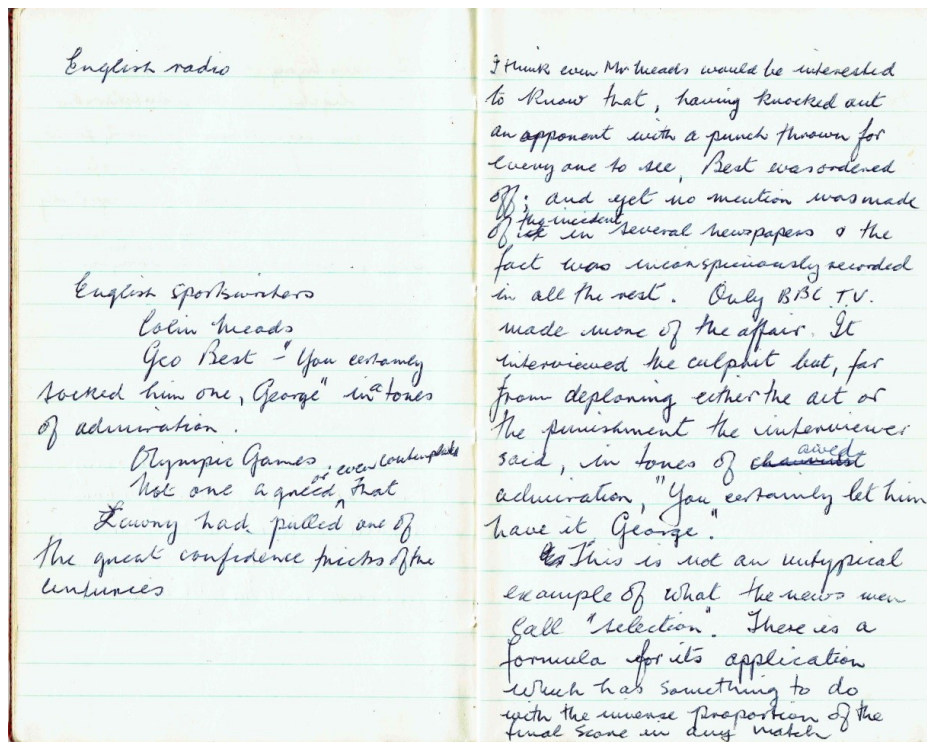 English radio
English sportswriters
Colin Meads
Geo Best - "You certainly
socked him one, George" in a tones
of admiration.
Olympic Games
Not one agreed, or even contemplated that
Lawny had pulled one of
the great confidence tricks of the
centuries
I think even Mr Meads would be interested
to know that, having knocked out
an opponent with a punch thrown for
everyone to see, Best was ordered
off; and yet no mention was made
of the incident in several newspapers & the
fact was inconspicuously recorded
in all the rest. Only BBC T.V.
made more of the affair. It
interviewed the culprit but, far
from deploring either the act or
the punishment the interviewer
said, in tones of awed
admiration, "You certainly let him
have it George."
This is not an untypical
example of what the news men
call "selection". There is a
formula for its application
which has something to do
with the inverse proportion of the
final score in any match